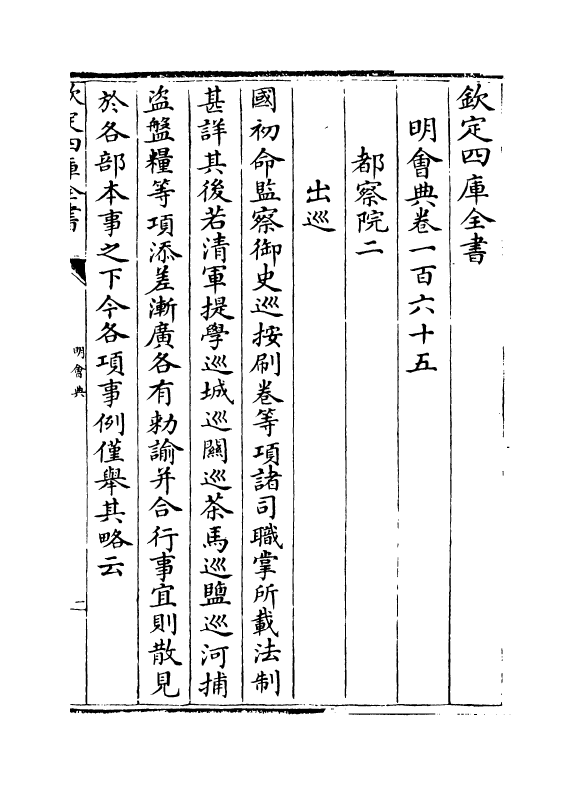 欽定四庫全書
明會典卷一百六十五
都察院二
出巡
國初命監察御史巡按刷卷等項諸司職掌所載法制
甚詳其後若清軍提學巡城巡關巡茶馬巡鹽巡河捕
盜盤糧等項添差漸廣各有勅諭并合行事宜則散見
於各部本事之下今各項事例僅舉其略云
欽定四庫全書
明會典
二